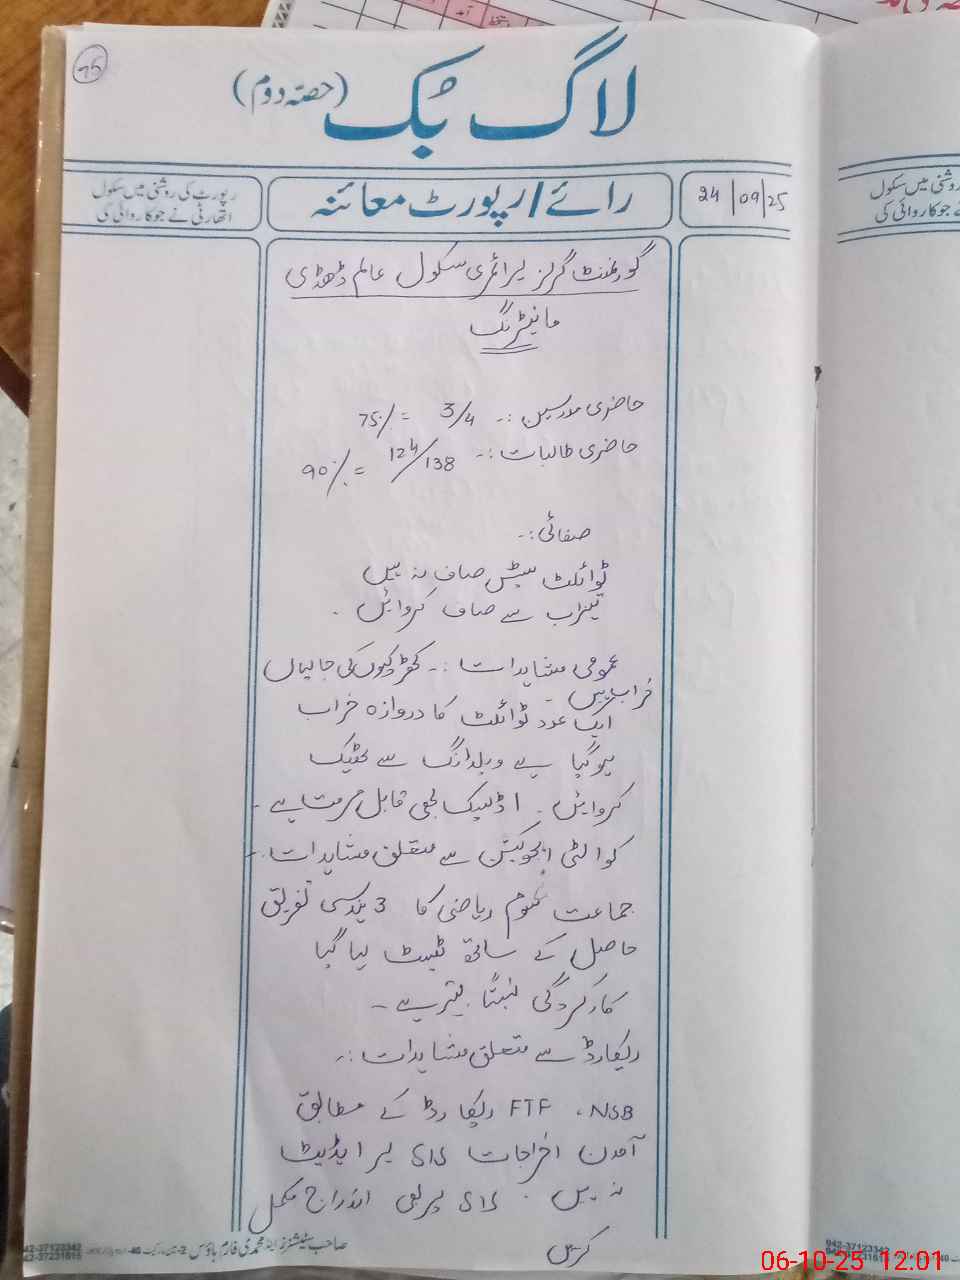 75
لاگ بک (حصّہ دوم)
24/09/25
رائے/رپورٹ معائنہ
رپورٹ کی روشنی میں سکول
اتھارٹی نے جو کاروائی کی
گورنمنٹ گرلز پرائمری سکول عالم ڈھڈی
مانیٹرنگ
حاضری مدرسین :۔ 3/4 = 75%
حاضری طالبات :۔ 124/138 = 90%
صفائی :۔
ٹوائلٹ سیٹس صاف نہ ہیں
تیزاب سے صاف کروائیں ۔
عمومی مشاہدات :۔ کھڑکیوں کی جالیاں
خراب ہیں ۔
ایک عدد ٹوائلٹ کا دروازہ خراب
ہو گیا ہے ویلڈنگ سے ٹھیک
کروائیں ۔ 1 ڈیسک بھی قابل مرمت ہے ۔
کوالٹی ایجوکیشن سے متعلق مشاہدات :۔
جماعت ریاضی کا 3 ہندسی تفریق
حاصل کے ساتھ ٹیسٹ لیا گیا
کارکردگی نسبتاً بہتر ہے ۔
ریکارڈ سے متعلق مشاہدات :۔
NSB ، FTF ریکارڈ کے مطابق
آمدن اخراجات SIS پر اپڈیٹ
نہ ہیں ۔ SIS پر بھی اندراج مکمل
کریں
صاحب سٹیشنرز اینڈ محمدی فارم ہاؤس
042-37123342
042-37231615
روشنی میں سکول
نے جو کاروائی کی
042-37123342
06-10-25 12:01